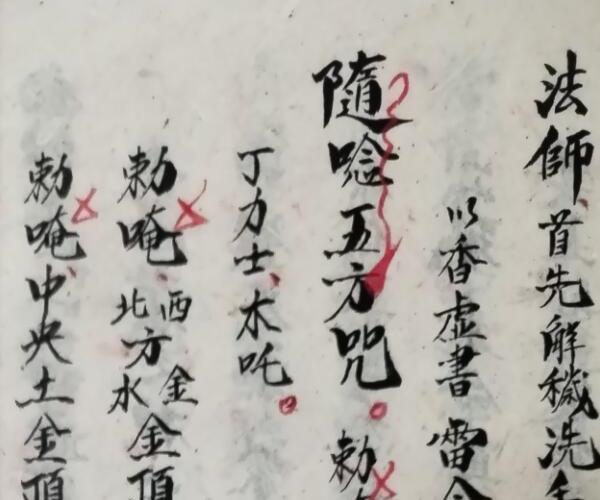 法師首先解穢洗手
以香虛書雷令
隨唸五方咒勅
丁力士木吒
勅唵西北方金水金頂
勅唵中央土金頂